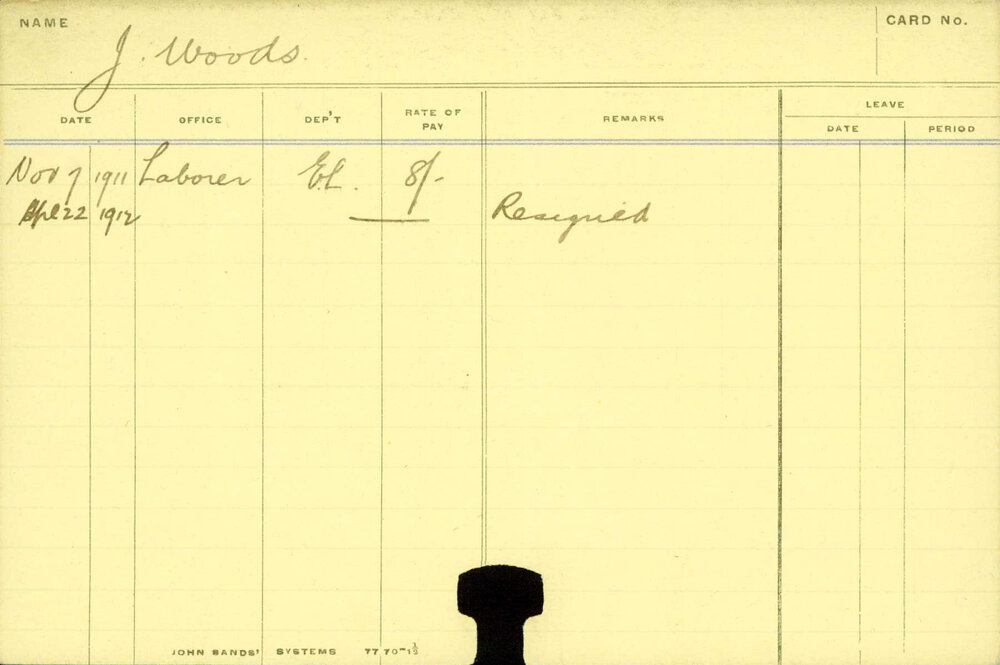 NAME
J. Woods.
CARD No.
DATE OFFICE DEP'T RATE OF PAY REMARKS LEAVE
DATE PERIOD
Nov 7 1911 Laborer E.L. 8/-
Apl 22 1912 Resigned
JOHN SANDS' SYSTEMS 77 70-1½